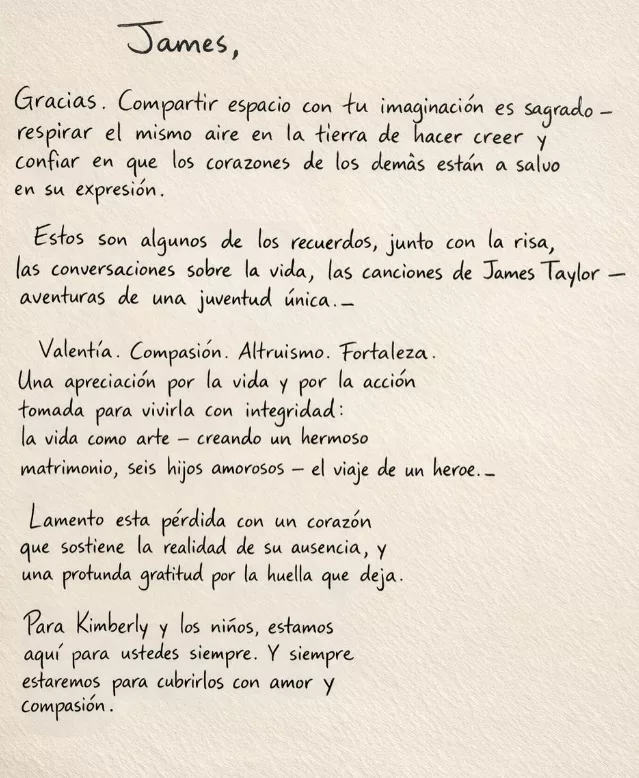 James,
Gracias. Compartir espacio con tu imaginación es sagrado –
respirar el mismo aire en la tierra de hacer creer y
confiar en que los corazones de los demàs están a salvo
en su expresión.
Estos son algunos de los recuerdos, junto con la risa,
las conversaciones sobre la vida, las canciones de James Taylor –
aventuras de una juventud única. –
Valentía. Compasión. Altruismo. Fortaleza.
Una apreciación por la vida y por la acción
tomada para vivirla con integridad:
la vida como arte – creando un hermoso
matrimonio, seis hijos amorosos – el viaje de un heroe. –
Lamento esta pérdida con un corazón
que sostiene la realidad de su ausencia, y
una profunda gratitud por la huella que deja.
Para Kimberly y los niños, estamos
aquí para ustedes siempre. Y siempre
estaremos para cubrirlos con amor y
compasión.